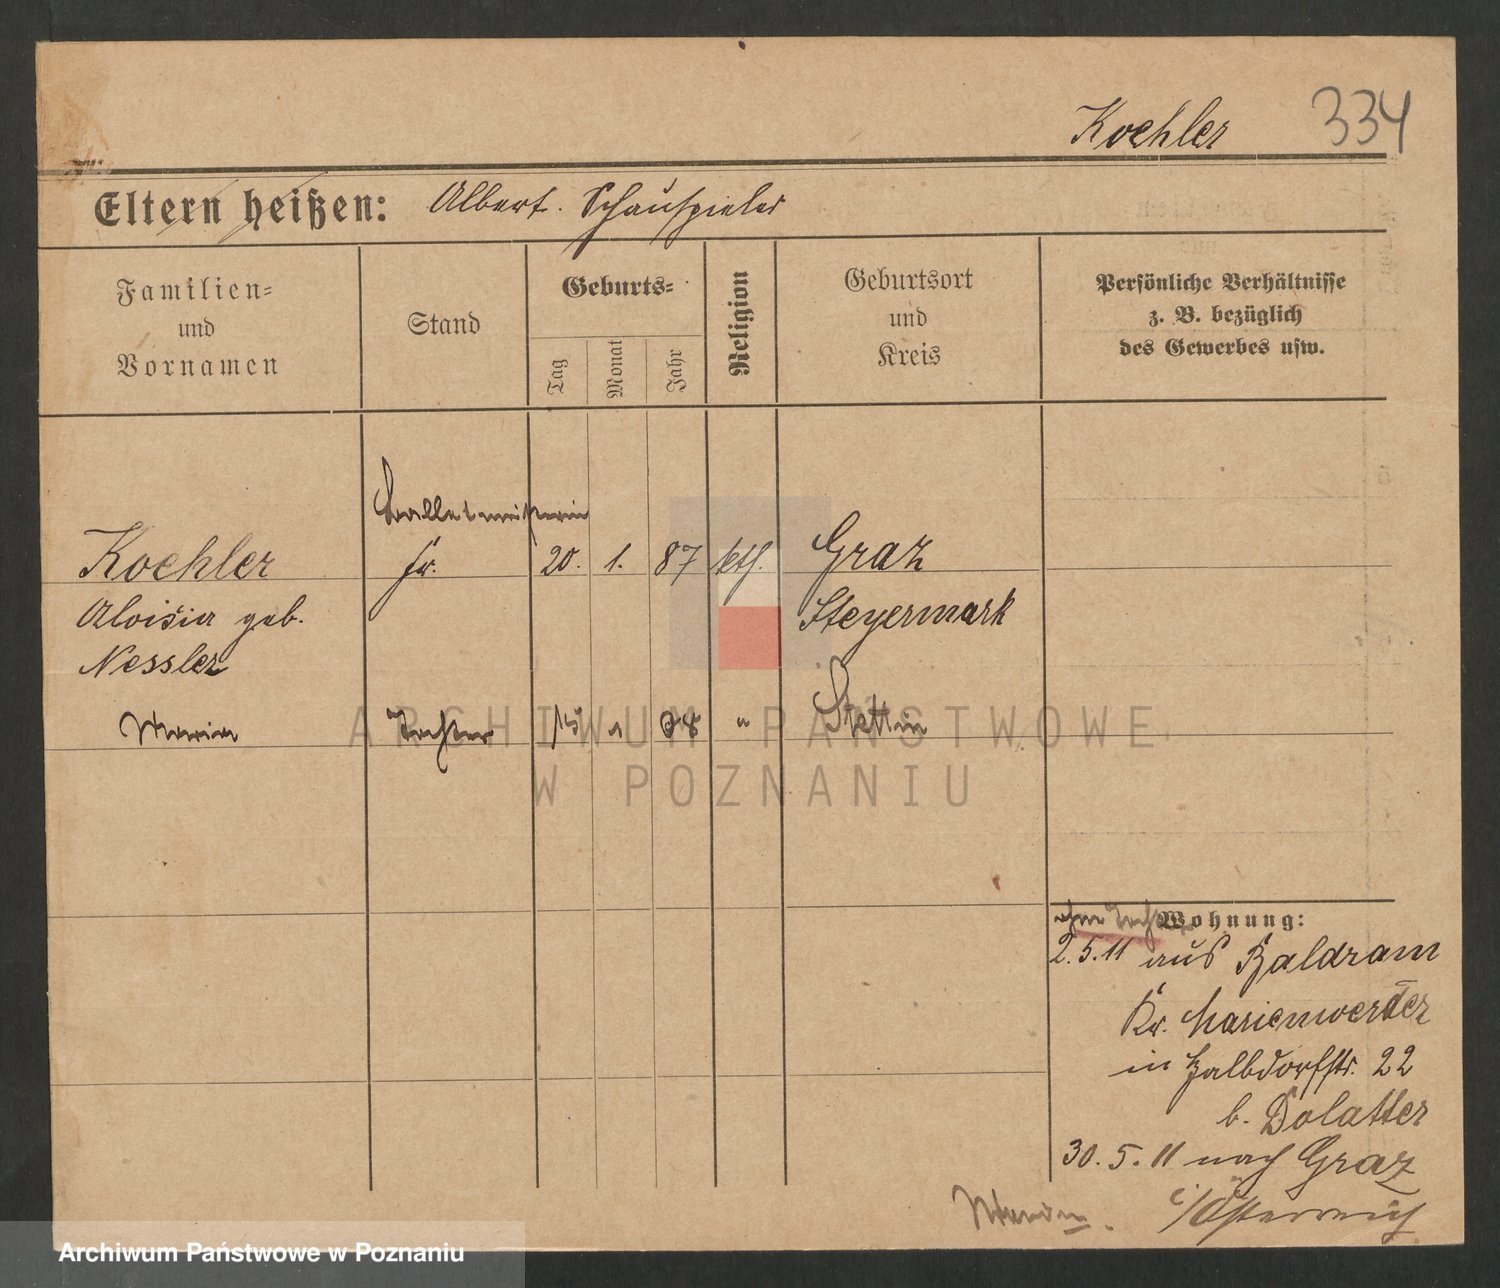 Koehler 334
Eltern heißen: Albert. Schauspieler
Familien=
und
Vornamen
Stand
Geburts=
Tag
Monat
Jahr
Religion
Geburtsort
und
Kreis
Persönliche Verhältnisse
z. B. bezüglich
des Gewerbes usw.
Balletmeisterin
Koehler fr. 20. 1. 87 kth. Graz
Aloisia geb. Steyermark
Nessler
Maria Tochter 15 08 " Stettin
ARCHIWUM PAŃSTWOWE
W POZNANIU
ohne Tochter
Wohnung:
2.5.11 aus Baldram
Kr. Marienwerder
in Halbdorfstr. 22
b. Dolatter
30.5.11 nach Graz
i/Österreich
Archiwum Państwowe w Poznaniu